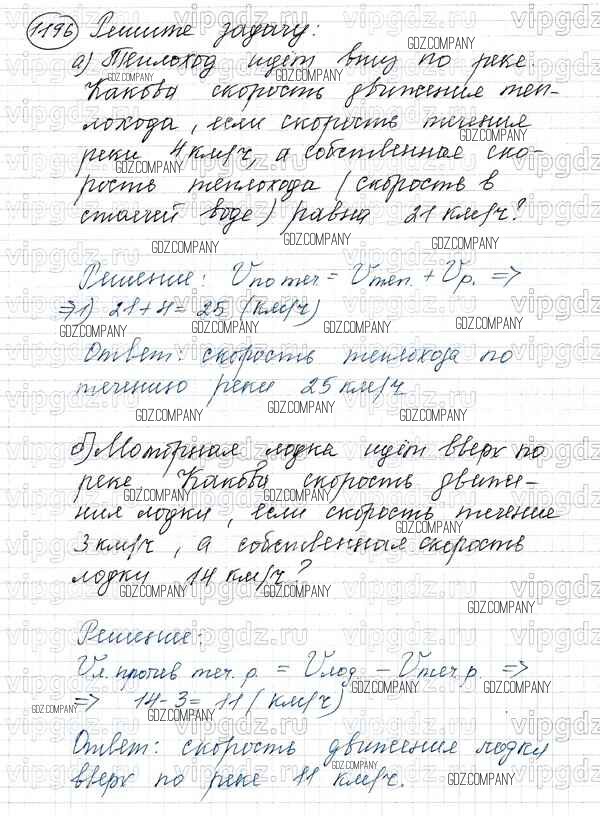 1196 Решите задачу:
а) Теплоход идёт вниз по реке.
Какова скорость движения теп-
лохода, если скорость течения
реки 4 км/ч, а собственная ско-
рость теплохода (скорость в
стоячей воде) равна 21 км/ч?
Решение: Vпо теч = Vтеп. + Vр. =>
=> 1) 21 + 4 = 25 (км/ч)
Ответ: скорость теплохода по
течению реки 25 км/ч
б) Моторная лодка идёт вверх по
реке. Какова скорость движе-
ния лодки, если скорость течение
3 км/ч, а собственная скорость
лодки 14 км/ч?
Решение:
Vл. против теч. р. = Vлод – Vтеч. р =>
=> 14 - 3 = 11 (км/ч)
Ответ: скорость движения лодки
вверх по реке 11 км/ч.
GDZ.COMPANY
vipgdz.ru